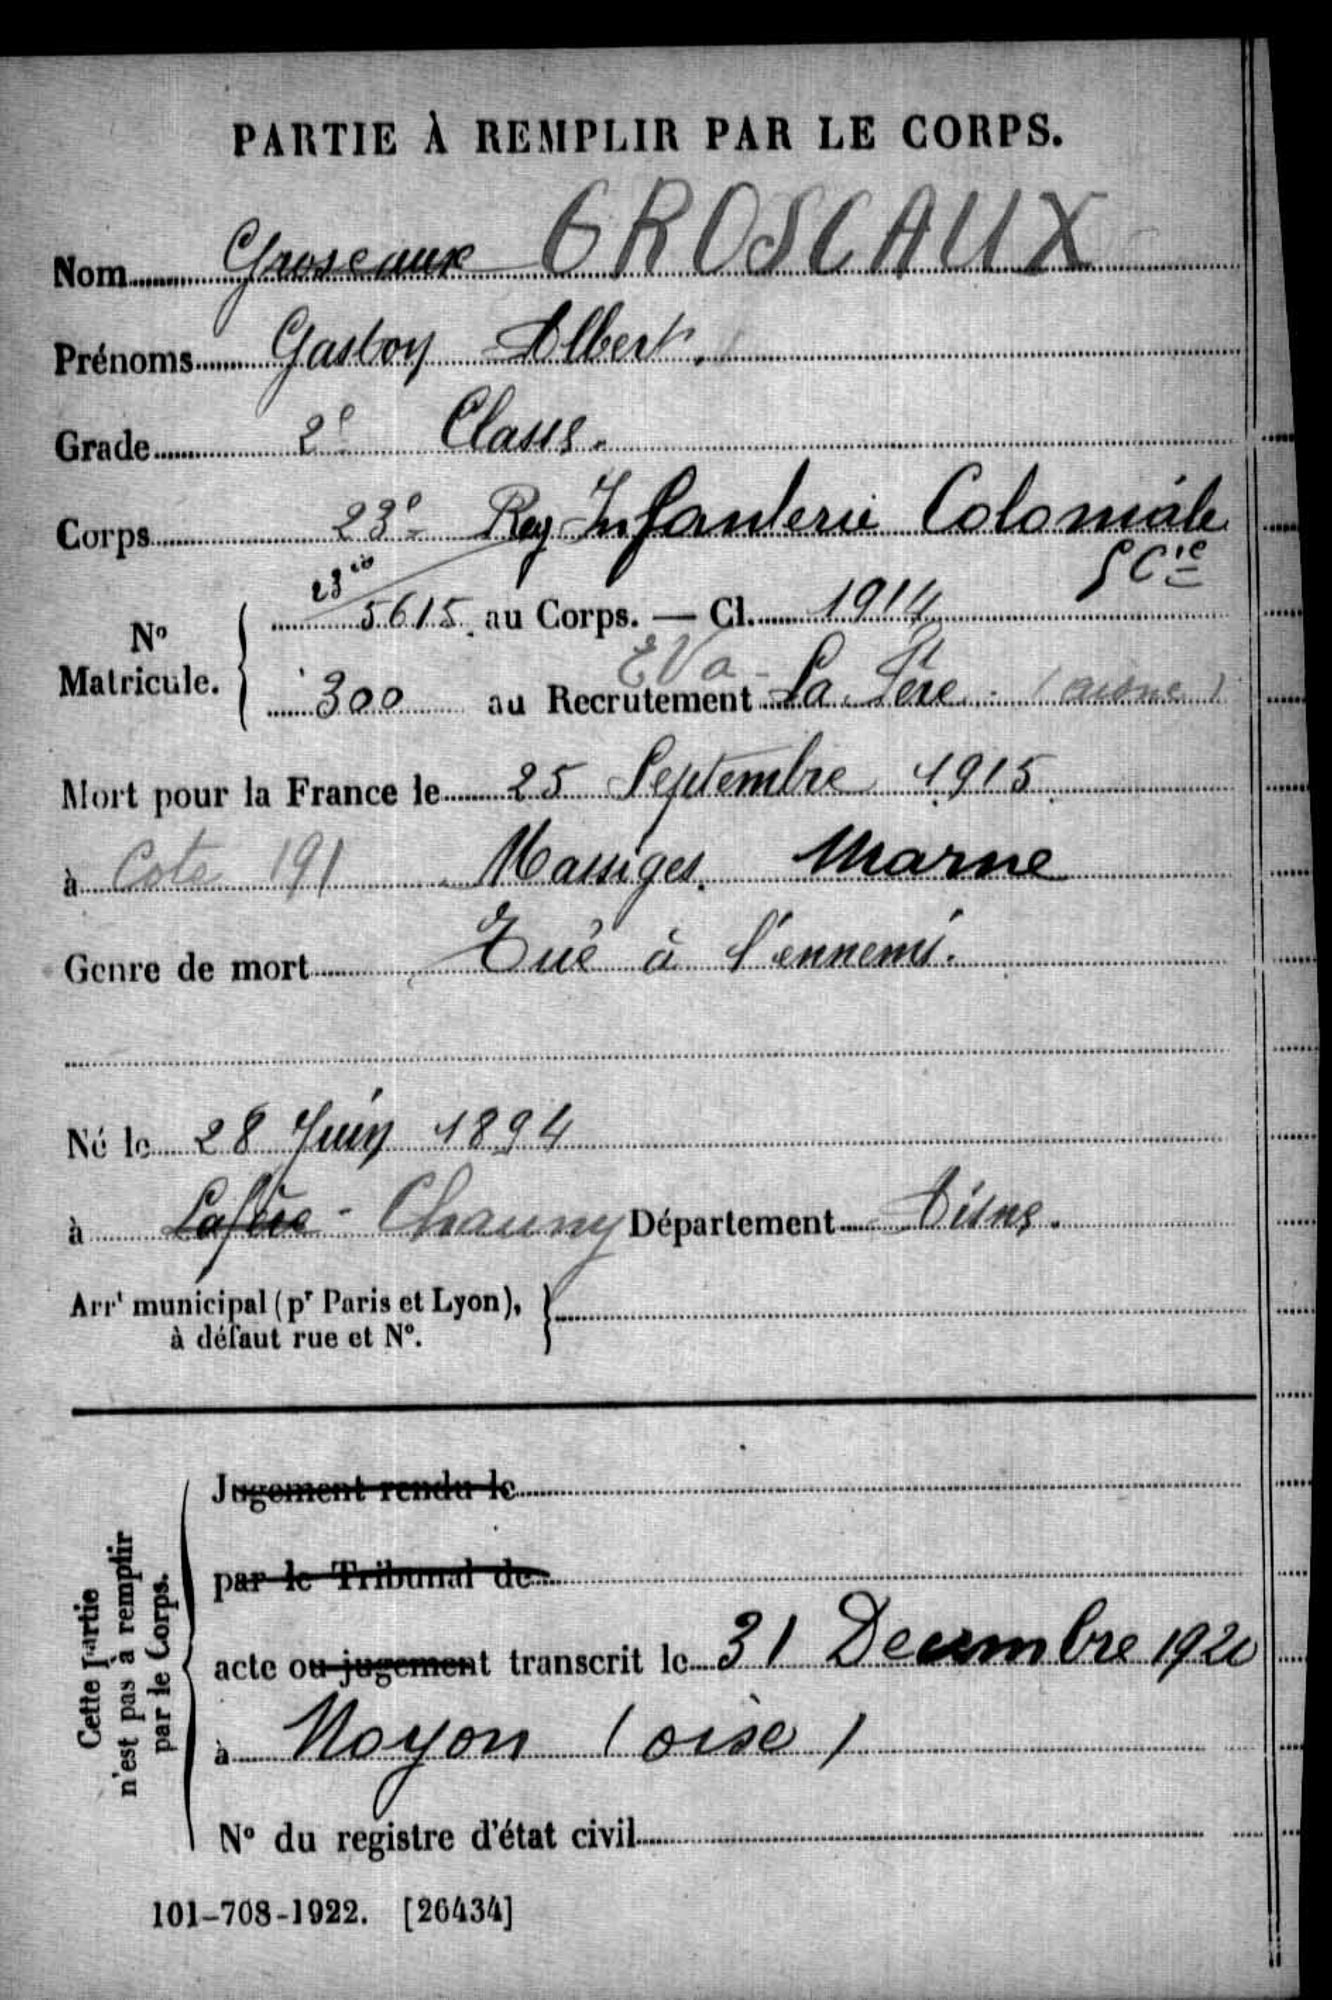 PARTIE À REMPLIR PAR LE CORPS.
Nom Groseaux GROSCAUX
Prénoms Gaston Albert.
Grade 2e Classe.
Corps 23e Reg Infanterie Coloniale
5 Cie
23
No Matricule. 5615 au Corps. — Cl. 1914
EVa
300 au Recrutement La Fère (aisne)
Mort pour la France le 25 Septembre 1915
à Cote 191 Massiges. Marne
Genre de mort Tué à l'ennemi.
Né le 28 Juin 1894
à Lafère - Chauny Département Aisne.
Arrt municipal (pr Paris et Lyon), à défaut rue et No.
Cette Partie n'est pas à remplir par le Corps.
Jugement rendu le
par le Tribunal de
acte ou jugement transcrit le 31 Decembre 1920
à Noyon (oise)
No du registre d'état civil
101-708-1922. [26434]